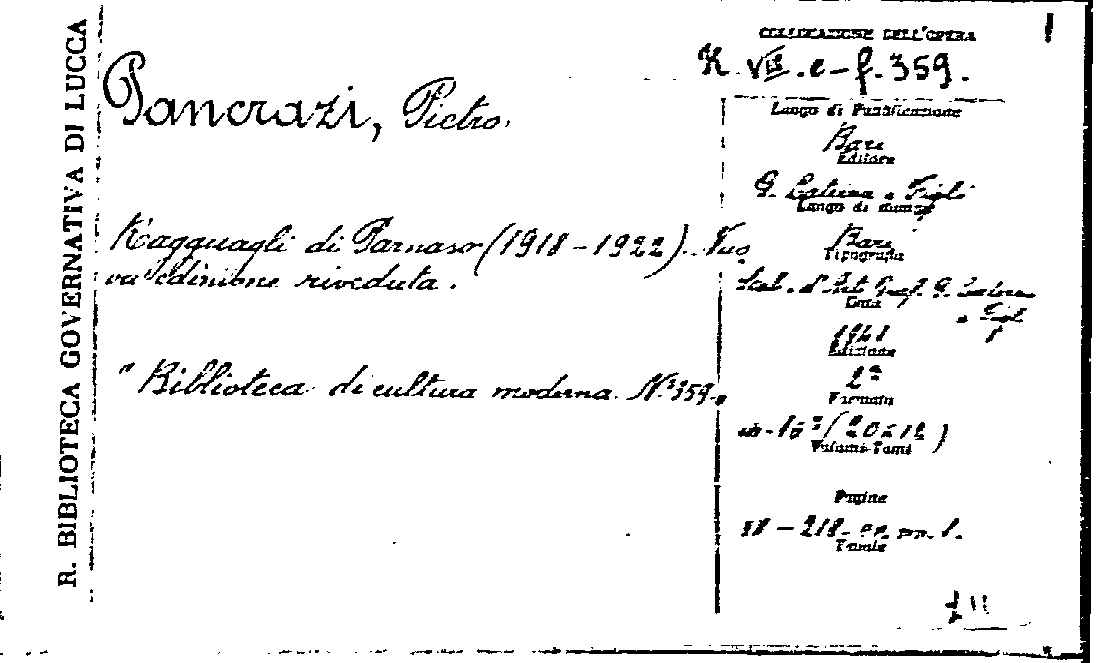 R. BIBLIOTECA GOVERNATIVA DI LUCCA
Pancrazi, Pietro.
Ragguagli di Parnaso (1918-1922). Nuo
va edizione riveduta.
"Biblioteca di cultura moderna. N.° 359."
1
COLLOCAZIONE DELL'OPERA
K. VII. e-f. 359.
Luogo di Pubblicazione
Bari
Editore
G. Laterza e Figli
Luogo di stampa
Bari
Tipografia
Stab. d'Arti Graf. G. Laterza
e Figli
Data
1941
Edizione
2ª
Formato
in-16° (20x12)
Volumi-Tomi
Pagine
218
Tavole